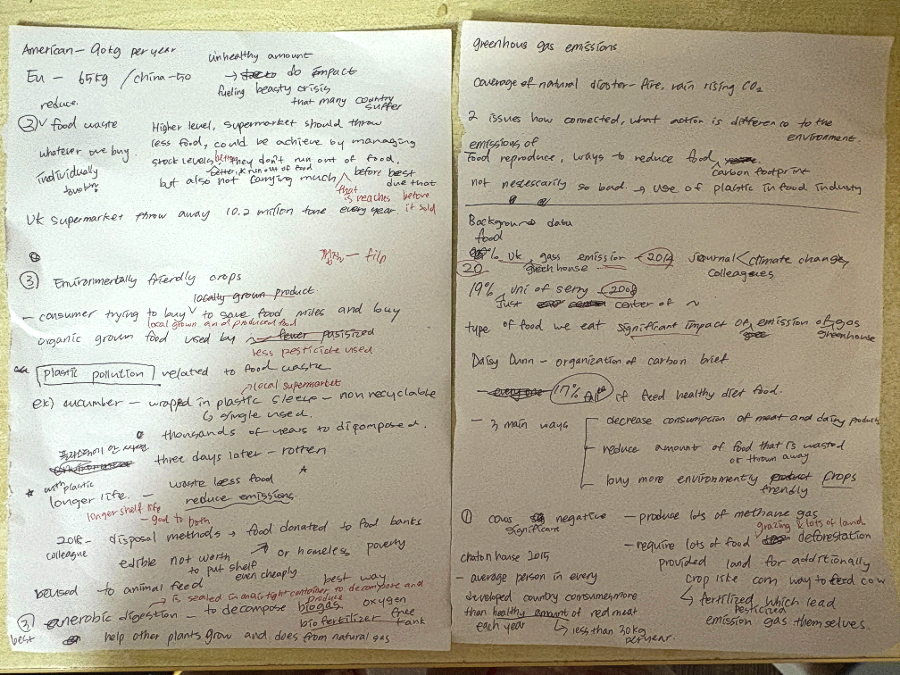 American - 90kg per year
unhealthy amount
EU - 65kg / china - 50
→ do impact
fueling beasty crisis
that many country suffer
reduce
② v food waste
whatever one buy
individually
Higher level, supermarket should throw
less food, could be achieve by managing
stock levels, they don't run out of food,
better run out of food
but also not carrying much before best
due that
that is reaches before
it sold
UK supermarket throw away 10.2 million tone every year
③ Environmentally friendly crops
locally grown product.
- consumer trying to buy v to save food miles and buy
local grown and produced food
organic grown food used by fewer pasisized
less pesticide used
plastic pollution related to food waste
local supermarket
ex) cucumber - wrapped in plastic sleeve - non recyclable
↳ single used.
thousands of years to dicomposed.
three days later - rotten
* with plastic
longer life. -
waste less food *
reduce emissions
longer shelf life
- god to both
2018 - disposal methods → food donated to food banks
colleague
edible not worth
to put shelf
or homeless poverty
even cheaply
beused to animal feed
best way
→ is sealed in an airtight container to decompose and
produce
② anerobic digestion - to decompose biogas oxygen
biofertilizer free
tank
best
help other plants grow and does from natural gas
greenhous gas emissions
coverage of natural disater - fire, rain rising CO2
2 issues how connected, what action is difference to the
environment.
emissions of
food reproduce, ways to reduce food
carbon footprint
not nessescarily so bad. → use of plastic in food industry
Background data
food
20 % UK, gass emission - 2014 Journal < climate change,
greenhouse
colleagues
19% uni of serry - 2008
Just center of ~
type of food we eat significant impact of emission of gas
greenhouse
Daisy Dunn - organization of carbon brief
- 17% fall if feed healthy diet food.
- 3 main ways
- decrease consumption of meat and dairy products
- reduce amount of food that is wasted
or thrown away
- buy more environmenty product crops
friendly
① cows negative
significant
- produce lots of methane gas
grazing & lots of land
- require lots of food deforestation
provided land for additionally
crop like corn way to feed cow
↳ fertilized which lead
pesticized
emission gas themselves.
chaton house 2015
- average person in every
developed country consumes more
than healthy amount of red meat
each year
↳ less than 30kg
per year.